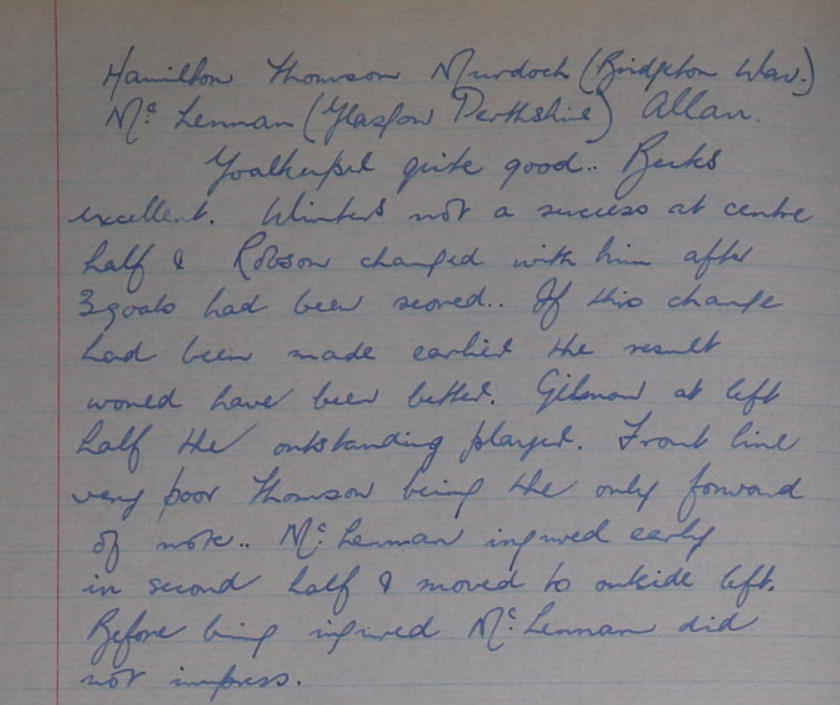 Hamilton Thomson Murdoch (Bridgeton Wav.)
Mc Lennan (Glasgow Perthshire) Allan.
Goalkeeper quite good.. Backs
excellent. Winters not a success at centre
half & Robson changed with him after
3 goals had been scored.. If this change
had been made earlier the result
would have been better. Gilmour at left
half the outstanding player. Front line
very poor Thomson being the only forward
of note.. Mc Lennan injured early
in second half & moved to outside left.
Before being injured Mc Lennan did
not impress.